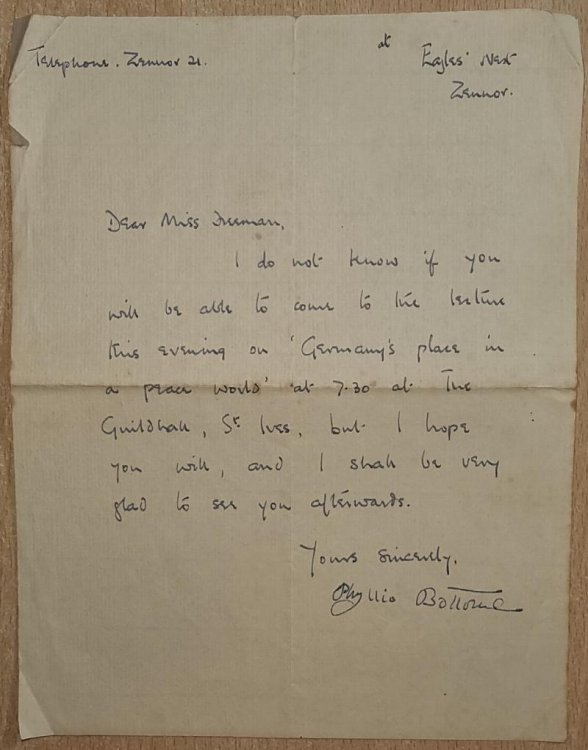 Telephone. Zennor 21.
at Eagles' Nest
Zennor.
Dear Miss Freeman,
I do not know if you
will be able to come to the lecture
this evening on 'Germany's place in
a peace world' at 7.30 at The
Guildhall, St Ives, but I hope
you will, and I shall be very
glad to see you afterwards.
Yours sincerely,
Phyllis Bottome